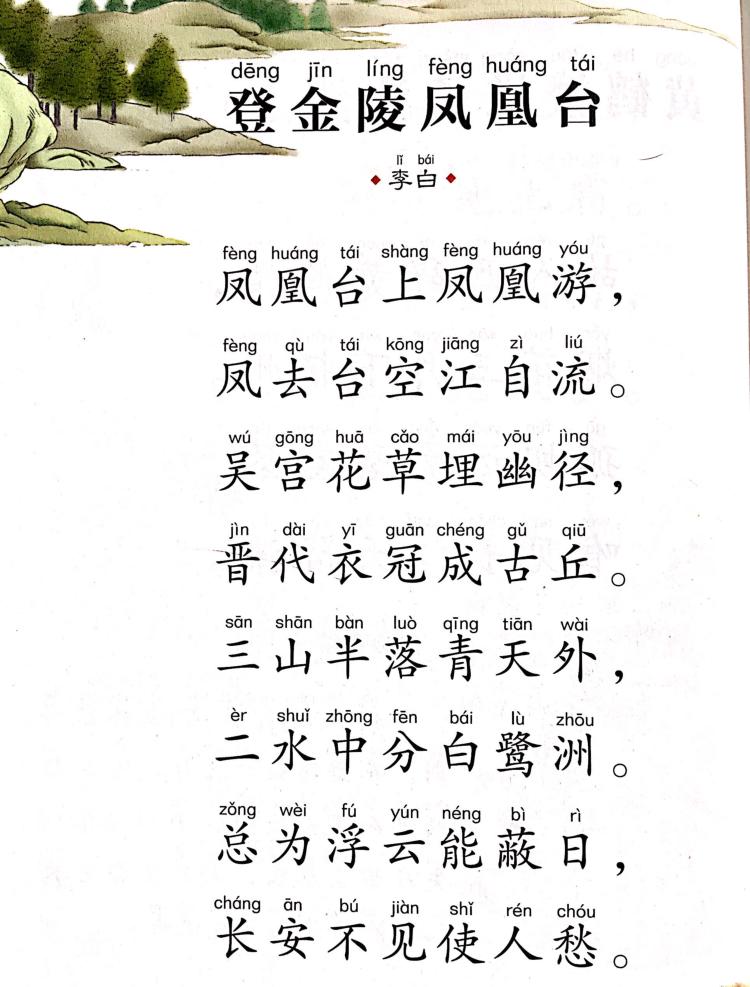 dēng jīn líng fèng huáng tái
登金陵凤凰台
lǐ bái
李白
fèng huáng tái shàng fèng huáng yóu
凤凰台上凤凰游，
fèng qù tái kōng jiāng zì liú
凤去台空江自流。
wú gōng huā cǎo mái yōu jìng
吴宫花草埋幽径，
jìn dài yī guān chéng gǔ qiū
晋代衣冠成古丘。
sān shān bàn luò qīng tiān wài
三山半落青天外，
èr shuǐ zhōng fēn bái lù zhōu
二水中分白鹭洲。
zǒng wèi fú yún néng bì rì
总为浮云能蔽日，
cháng ān bú jiàn shǐ rén chóu
长安不见使人愁。